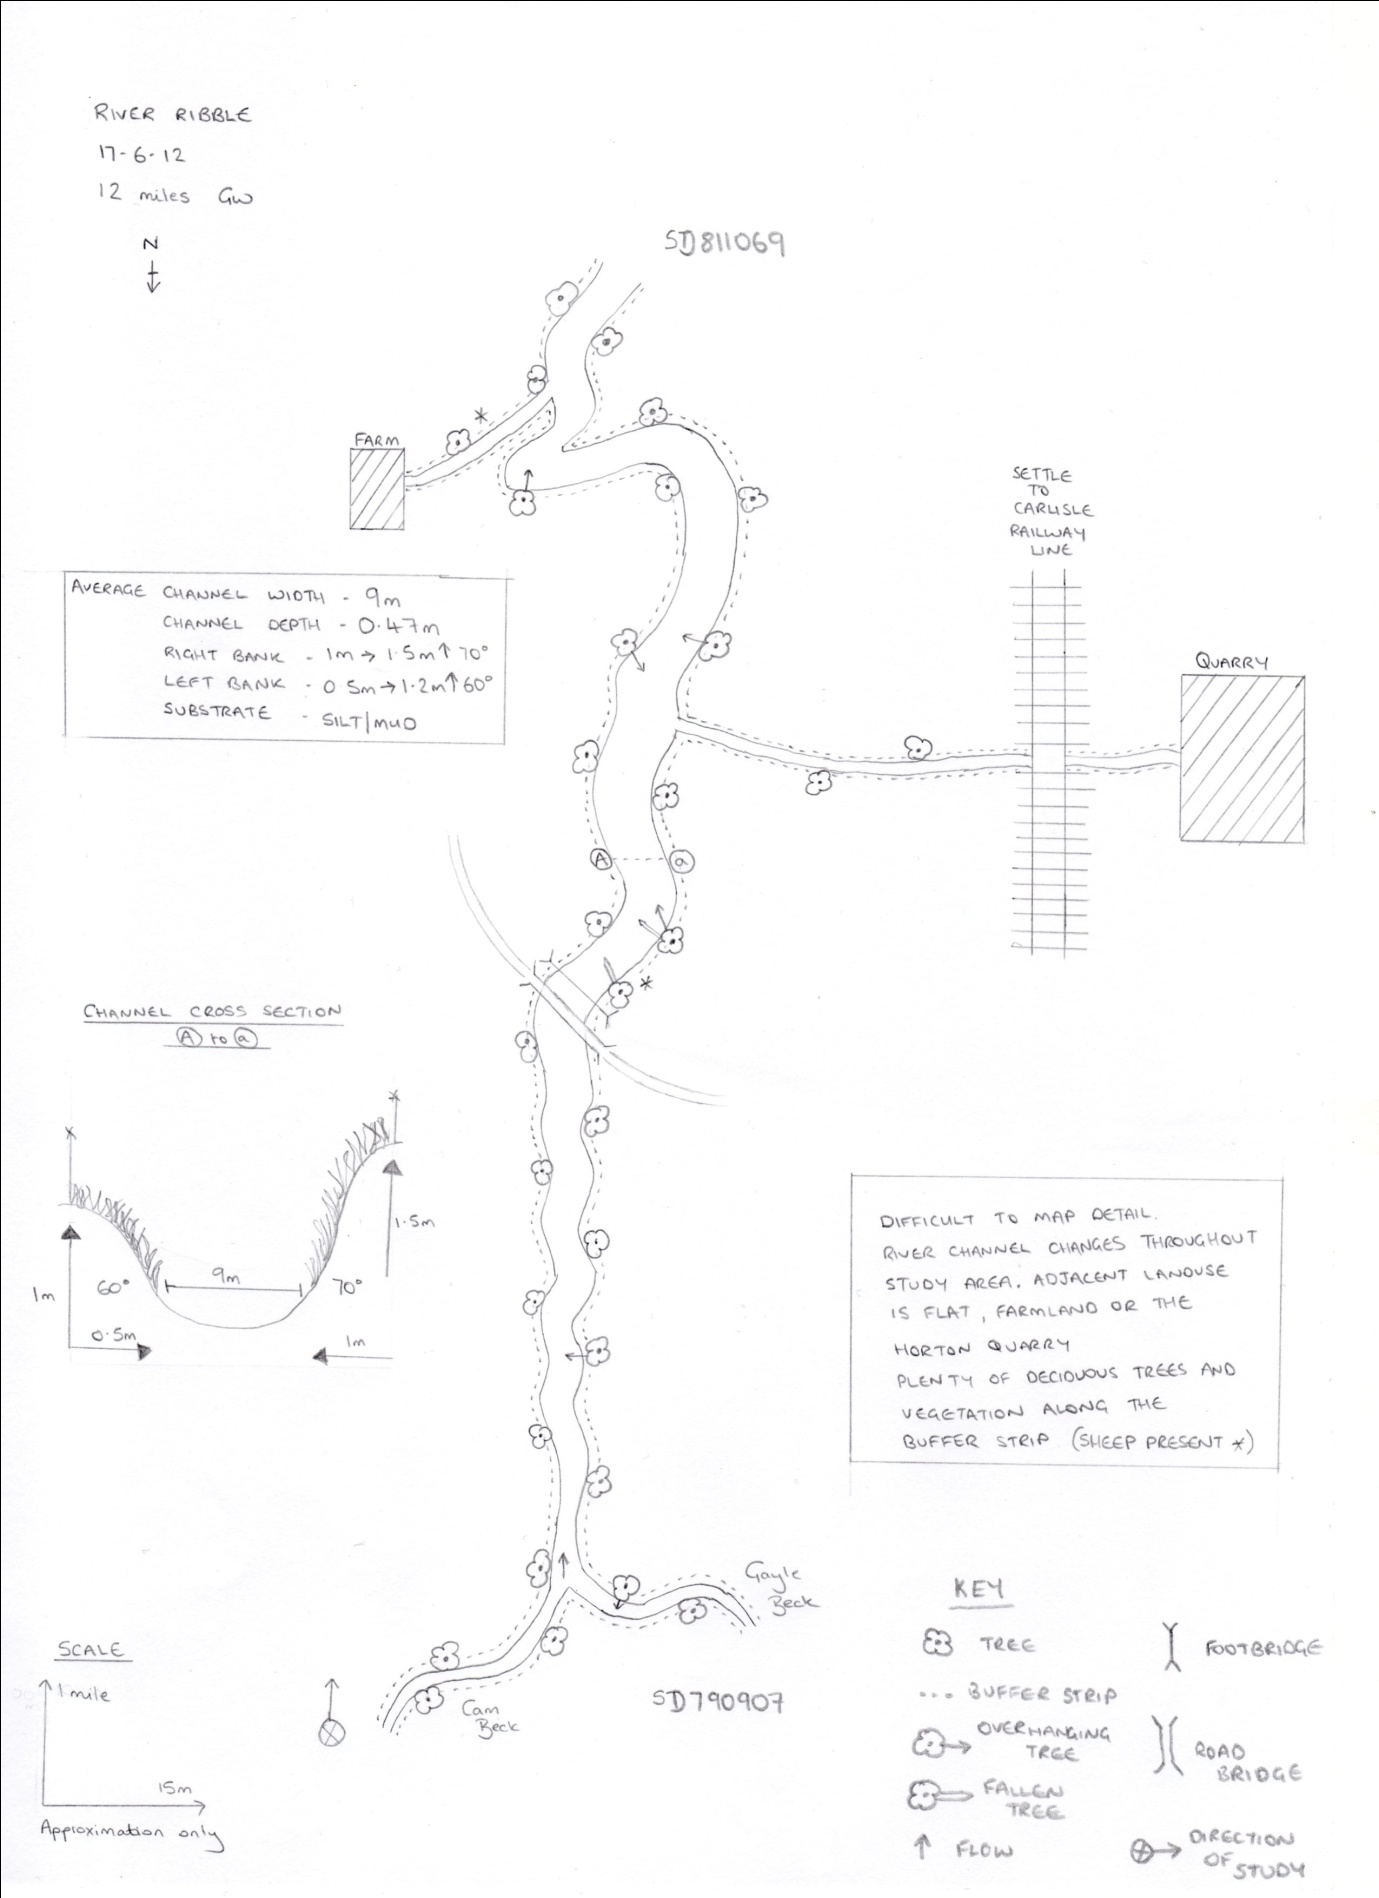 RIVER RIBBLE
17-6-12
12 miles GW
N
SD811069
FARM
*
SETTLE
TO
CARLISLE
RAILWAY
LINE
AVERAGE CHANNEL WIDTH - 9m
CHANNEL DEPTH - 0.47m
RIGHT BANK - 1m → 1.5m ↑ 70°
LEFT BANK - 0 5m → 1.2m ↑ 60°
SUBSTRATE - SILT/MUD
QUARRY
A a
*
CHANNEL CROSS SECTION
A to a
1.5m
1m
60°
9m
70°
0.5m
1m
DIFFICULT TO MAP DETAIL.
RIVER CHANNEL CHANGES THROUGHOUT
STUDY AREA. ADJACENT LANDUSE
IS FLAT, FARMLAND OR THE
HORTON QUARRY
PLENTY OF DECIDUOUS TREES AND
VEGETATION ALONG THE
BUFFER STRIP (SHEEP PRESENT *)
Gayle
Beck
Cam
Beck
SD790907
SCALE
1 mile
15m
Approximation only
KEY
TREE
BUFFER STRIP
OVERHANGING
TREE
FALLEN
TREE
FLOW
FOOTBRIDGE
ROAD
BRIDGE
DIRECTION
OF STUDY